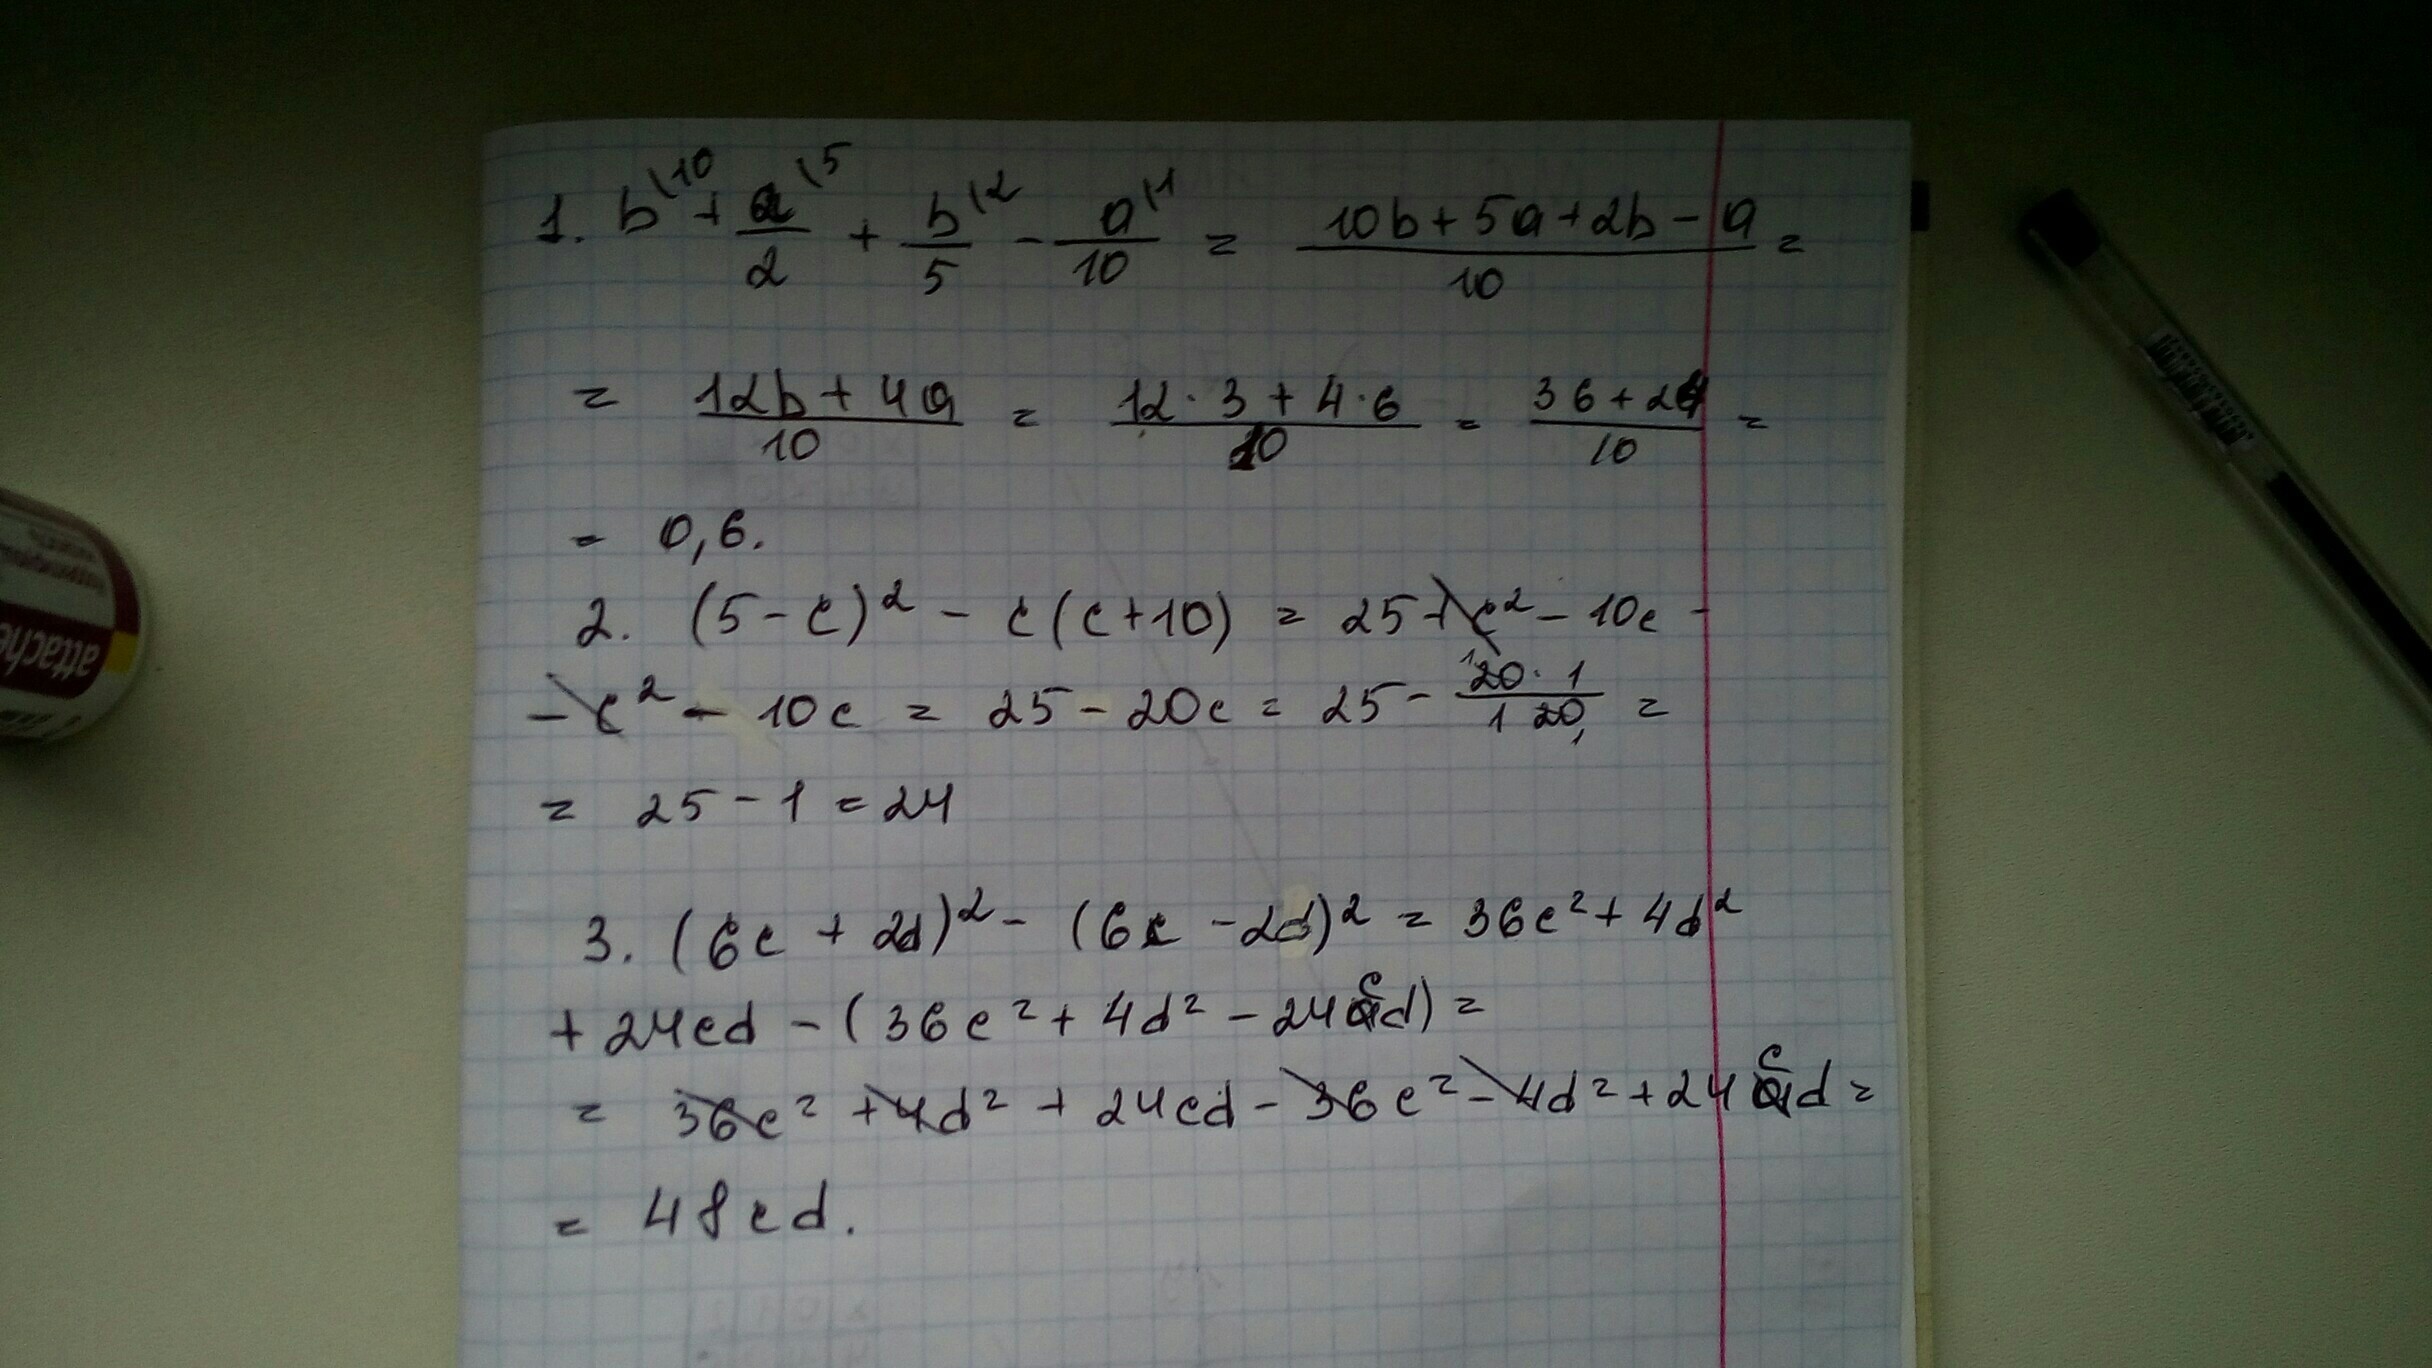 1. b\10 + a\5/2 + b\2/5 - a\1/10 = (10b+5a+2b-a)/10 =
= (12b+4a)/10 = (12·3+4·6)/10 = (36+24)/10 =
= 0,6.
2. (5-c)² - c(c+10) = 25+c²-10c -
-c²-10c = 25-20c = 25 - (20·1)/(1 20) =
= 25-1=24
3. (6c+2d)² - (6c-2d)² = 36c²+4d²
+24cd-(36c²+4d²-24cd)=
= 36c²+4d²+24cd-36c²-4d²+24cd=
= 48cd.
attache